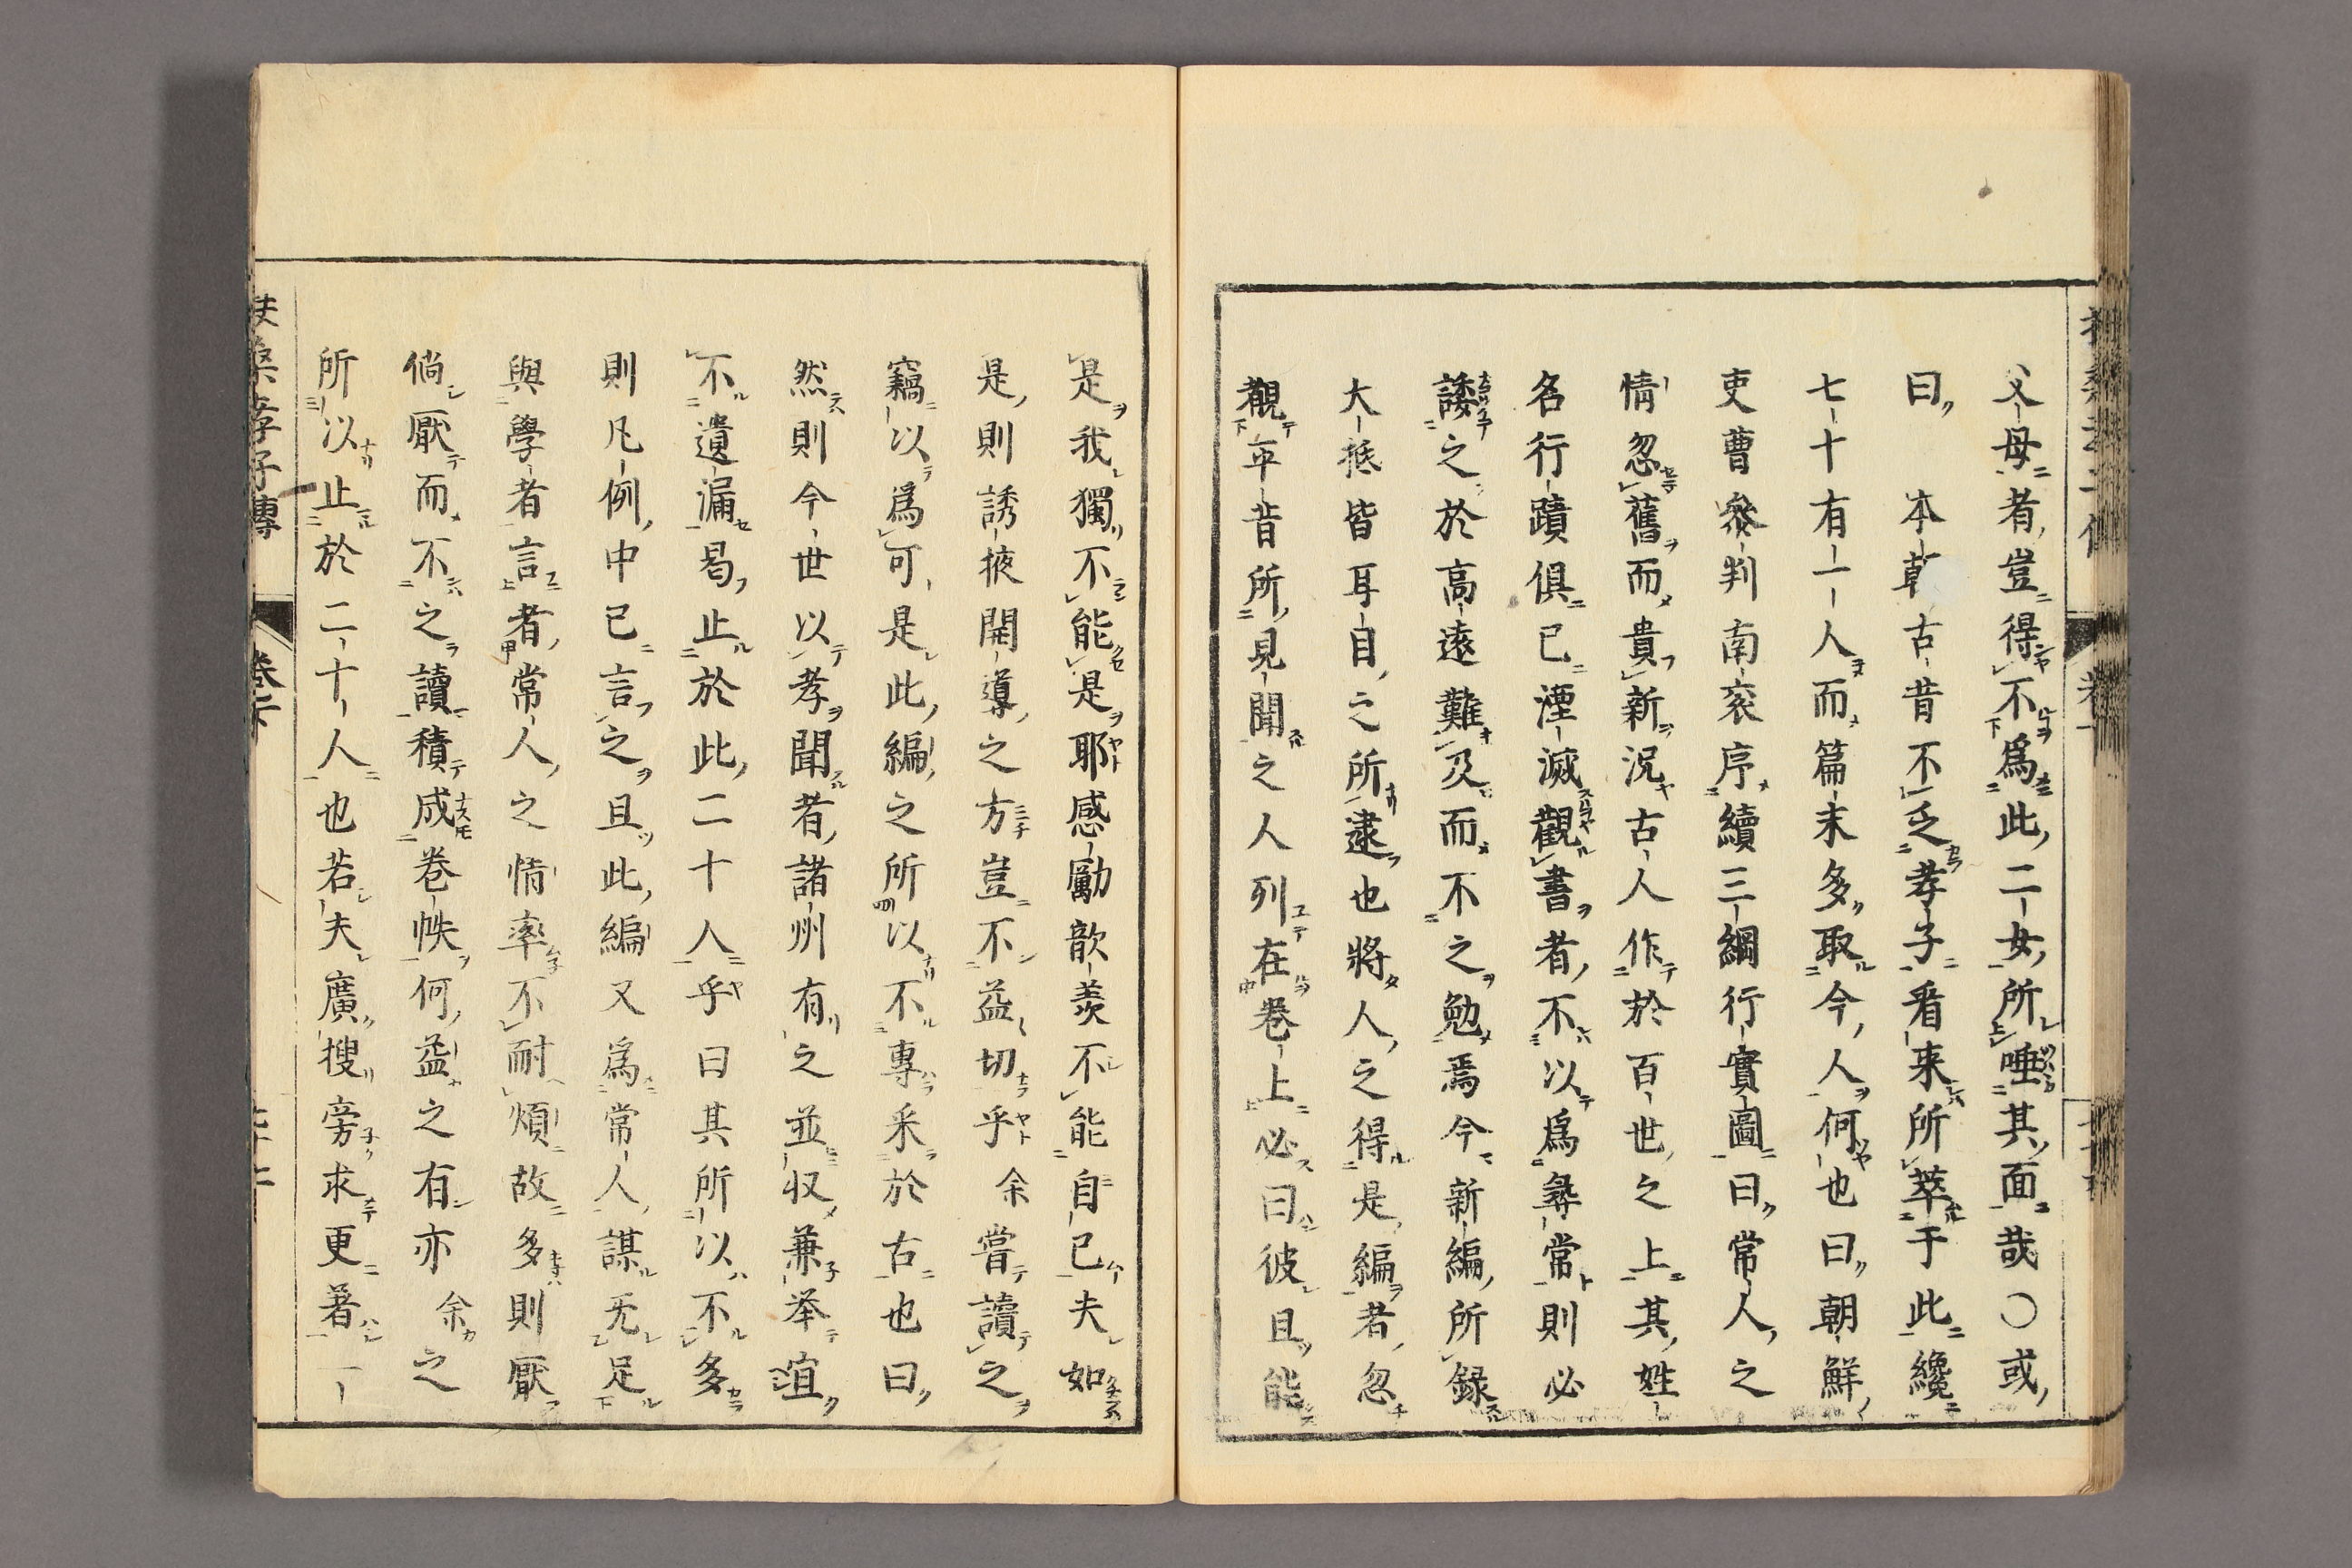 父母者豈得不爲此二女所唾其面哉〇或
曰本朝古昔不乏孝子看来所萃于此纔
七十有一人而篇末多取今人何也曰朝鮮
吏曹參判南袞序續三綱行實圖曰常人之
情忽舊而貴新況古人作於百世之上其姓
名行蹟俱已湮滅觀書者不以爲彜常則必
諉之於高遠難及而不之勉焉今新編所録
大抵皆耳目之所逮也將人之得是編者忽
觀平昔所見聞之人列在巻上必曰彼且能
是我獨不能是耶感勵歆羨不能自已夫如
是則誘掖開導之方豈不益切乎余嘗讀之
竊以爲可是此編之所以不專釆於古也曰
然則今世以孝聞者諸州有之並収兼举誼
不遺漏曷止於此二十人乎曰其所以不多
則凡例中已言之且此編又爲常人謀无足
與學者言者常人之情率不耐煩故多則厭
倘厭而不之讀積成巻帙何益之有亦余之
所以止於二十人也若夫廣搜旁求更著一
扶桒孝子傳 巻下